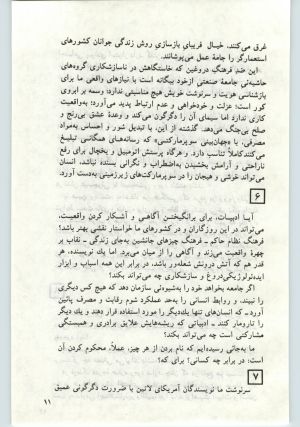 غرق می‌کنند، خیال فریبای بازسازی روش زندگی جوانان کشورهای
استعمارگر را جامهٔ عمل می‌پوشانند.
این ضد فرهنگ دروغین که خاستگاهش در ناسازشکاری گروههای
حاشیه‌ئی جامعهٔ صنعتی از خود بیگانه است با نیازهای واقعی ما برای
بازشناسی هویت و سرنوشت خویش هیچ مناسبتی ندارد؛ وسمه بر ابروی
کور است: عزلت و خودخواهی و عدم ارتباط پدید می‌آورد؛ به‌واقعیت
کاری ندارد اما سیمای آن را دگرگون می‌کند و وعدهٔ عشق بی‌رنج و
صلح بی‌جنگ می‌دهد. گذشته از این، با تبدیل شور و احساس به‌مواد
مصرفی، با «جهان‌بینی سوپرمارکتی» که رسانه‌های همگانی تبلیغ
می‌کنند کاملاً تناسب دارد. و هرگاه پرستش اتومبیل و یخچال برای رفع
ناراحتی و آرامش بخشیدن به‌اضطراب و نگرانی بسنده نباشد، انسان
می‌تواند خوشی و هیجان را در سوپرمارکت‌های زیرزمینی به‌دست آورد.
۶
آیا ادبیات، برای برانگیختن آگاهی و آشکار کردن واقعیت،
می‌تواند در این روزگاران و در کشورهای ما خواستار نقشی بهتر باشد؟
فرهنگ نظام حاکم ـ فرهنگ چیزهای جانشین به‌جای زندگی ـ نقاب بر
چهرهٔ واقعیت می‌زند و آگاهی را از میان می‌برد. اما یك نویسنده، هر
قدر هم که آتش درونش شعله‌ور باشد، در برابر این همه اسباب و ابزار
ایدئولوژیکی دروغ و سازشکاری چه می‌تواند بکند؟
اگر جامعه بخواهد خود را به‌شیوه‌ئی سازمان دهد که هیچ کس دیگری
را نبیند، و روابط انسانی را به‌حد عملکرد شوم رقابت و مصرف پائین
آورد ـ که انسان‌های تنها یك‌دیگر را مورد استفاده قرار دهند و یك دیگر
را تارومار کنند ـ ادبیاتی که ریشه‌هایش علایق برادری و همبستگی
مشارکتی است چه می‌تواند بکند؟
ما به‌جائی رسیده‌ایم که نام بردن از هر چیز، عملاً، محکوم کردن آن
است: در برابر چه کسانی؟ برای که؟
۷
سرنوشت ما نویسندگان آمریکای لاتین با ضرورت دگرگونی عمیق
۱۱